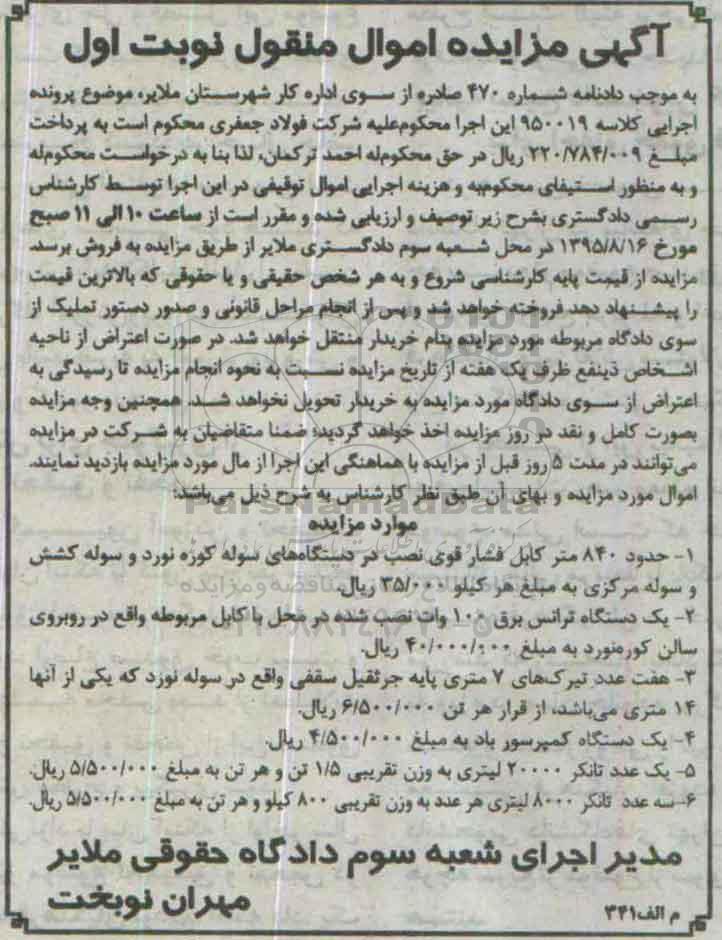 آگهی مزایده اموال منقول نوبت اول
به موجب دادنامه شماره ۴۷۰ صادره از سوی اداره کار شهرستان ملایر، موضوع پرونده
اجرایی کلاسه ۹۵۰۰۱۹ این اجرا محکوم‌علیه شرکت فولاد جعفری محکوم است به پرداخت
مبلغ ۲۲۰/۷۸۴/۰۰۹ ریال در حق محکوم‌له احمد ترکمان، لذا بنا به درخواست محکوم‌له
و به منظور استیفای محکوم‌به و هزینه اجرایی اموال توقیفی در این اجرا توسط کارشناس
رسمی دادگستری بشرح زیر توصیف و ارزیابی شده و مقرر است از ساعت ۱۰ الی ۱۱ صبح
مورخ ۱۳۹۵/۸/۱۶ در محل شعبه سوم دادگستری ملایر از طریق مزایده به فروش برسد.
مزایده از قیمت پایه کارشناسی شروع و به هر شخص حقیقی و یا حقوقی که بالاترین قیمت
را پیشنهاد دهد فروخته خواهد شد و پس از انجام مراحل قانونی و صدور دستور تملیک از
سوی دادگاه مربوطه مورد مزایده بنام خریدار منتقل خواهد شد. در صورت اعتراض از ناحیه
اشخاص ذینفع ظرف یک هفته از تاریخ مزایده نسبت به نحوه انجام مزایده تا رسیدگی به
اعتراض از سوی دادگاه مورد مزایده به خریدار تحویل نخواهد شد. همچنین وجه مزایده
بصورت کامل و نقد در روز مزایده اخذ خواهد گردید؛ ضمنا متقاضیان به شرکت در مزایده
می‌توانند در مدت ۵ روز قبل از مزایده با هماهنگی این اجرا از مال مورد مزایده بازدید نمایند.
اموال مورد مزایده و بهای آن طبق نظر کارشناس به شرح ذیل می‌باشد:
ParsNamadData
موارد مزایده
۱- حدود ۸۴۰ متر کابل فشار قوی نصب در دستگاه‌های سوله کوزه نورد و سوله کشش
و سوله مرکزی به مبلغ هر کیلو ۳۵/۰۰۰ ریال.
۲- یک دستگاه ترانس برق ۱۰۰ وات نصب شده در محل با کابل مربوطه واقع در روبروی
سالن کوره‌نورد به مبلغ ۴۰/۰۰۰/۰۰۰ ریال.
۳- هفت عدد تیرک‌های ۷ متری پایه جرثقیل سقفی واقع در سوله نورد که یکی از آنها
۱۴ متری می‌باشد، از قرار هر تن ۶/۵۰۰/۰۰۰ ریال.
۴- یک دستگاه کمپرسور باد به مبلغ ۴/۵۰۰/۰۰۰ ریال.
۵- یک عدد تانکر ۲۰۰۰۰ لیتری به وزن تقریبی ۱/۵ تن و هر تن به مبلغ ۵/۵۰۰/۰۰۰ ریال.
۶- سه عدد تانکر ۸۰۰۰ لیتری هر عدد به وزن تقریبی ۸۰۰ کیلو و هر تن به مبلغ ۵/۵۰۰/۰۰۰ ریال.
مدیر اجرای شعبه سوم دادگاه حقوقی ملایر
مهران نوبخت
م الف ۳۴۱